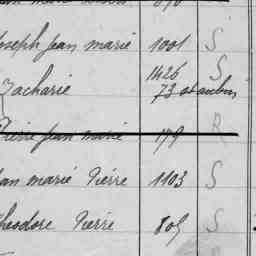 Joseph Jean marie 1001 S
1426 S
Zacharie 73 st aubin
Pierre Jean marie 179 R
Jean marie Pierre 1103 S
Theodore Pierre 805 S